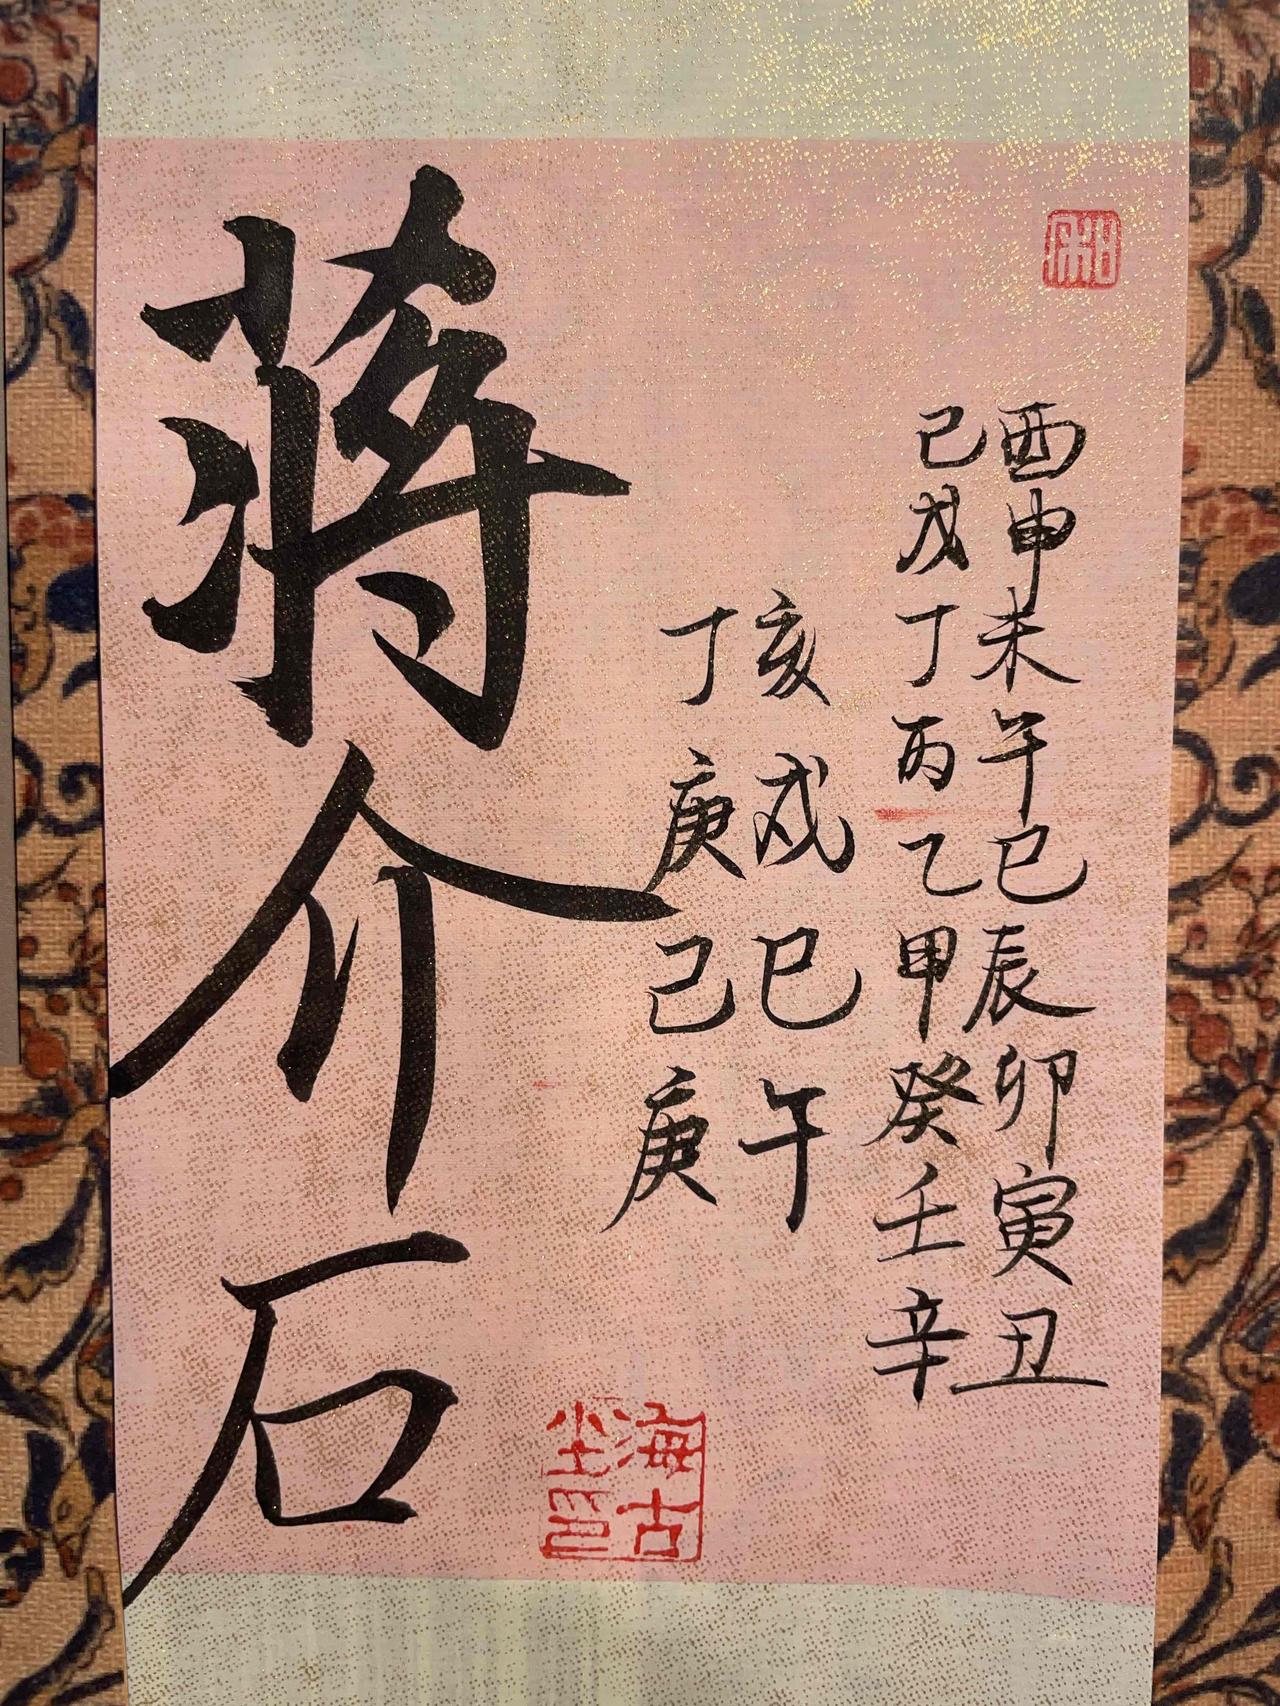 酉申未午巳辰卯寅丑
己戊丁丙乙甲癸壬辛
亥戌巳午
丁庚己庚
蒋介石
海古
尘印